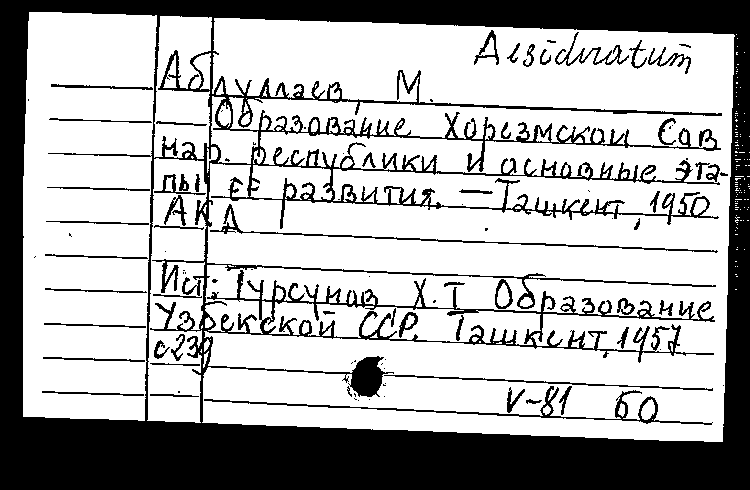 Desideratum
Абдуллаев, М.
Образование Хорезмской Сов
нар. республики и основные эта-
пы ее развития. — Ташкент, 1950
АКД
Ист: Турсунов, Х.Т Образование
Узбекской ССР. Ташкент, 1957
с 239
V-81 БО